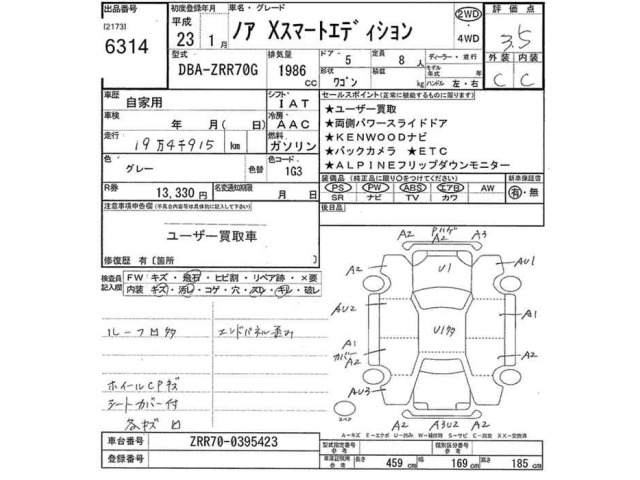 出品番号 初度登録年月 車名・グレード 2WD・4WD 評価点
[2173]
6314
平成 23 1月 ノア Xスマートエディション 3.5
型式 排気量 ドア 5 定員 8人 ディーラー・並行 外装 内装
DBA-ZRR70G 1986 cc 形状 ワゴン 積載 kg モデル年式 年 ハンドル 左・右 C C
車歴 自家用 シフト IAT セールスポイント(正常に機能するものに限ります)
車検 年 月(日) 冷房 AAC ★ユーザー買取
★両側パワースライドドア
走行 19万4千915 km 燃料 ガソリン ★KENWOODナビ
★バックカメラ ★ETC
色 グレー 色替 色コード 1G3 ★ALPINEフリップダウンモニター
装備品(純正品に限り○をつけてください) 新車保証書
R券 13,330円 名変通知期限 月 日 PS PW ABS エアB AW 有・無
SR ナビ TV カワ
注意事項申告欄(不具合内容等は具体的に記入して下さい) 後日品
ユーザー買取車
修復歴 有[箇所
検査員記入欄 FW キズ・飛石・ヒビ割・リペア跡・×要
内装 キズ・汚レ・コゲ・穴・スレ・キレ・破レ
ルーフ凹多 エンドパネル歪み
ホイールCPキズ
シートカバー付
各キズ凹
A2 A2 A3
A2 U1 AU1
AU2 A1
U1多
A1 カバーA2 A2
AU3 A1
スペア
A2 A3U2 A2
A-キズ E-エクボ U-凹み W-補修跡 S-サビ C-腐食 XX-交換済
車台番号 ZRR70-0395423 型式指定番号 参考 類別区分番号 参考
登録番号 車庫証明用 参考 長さ 459 cm 幅 169 cm 高さ 185 cm